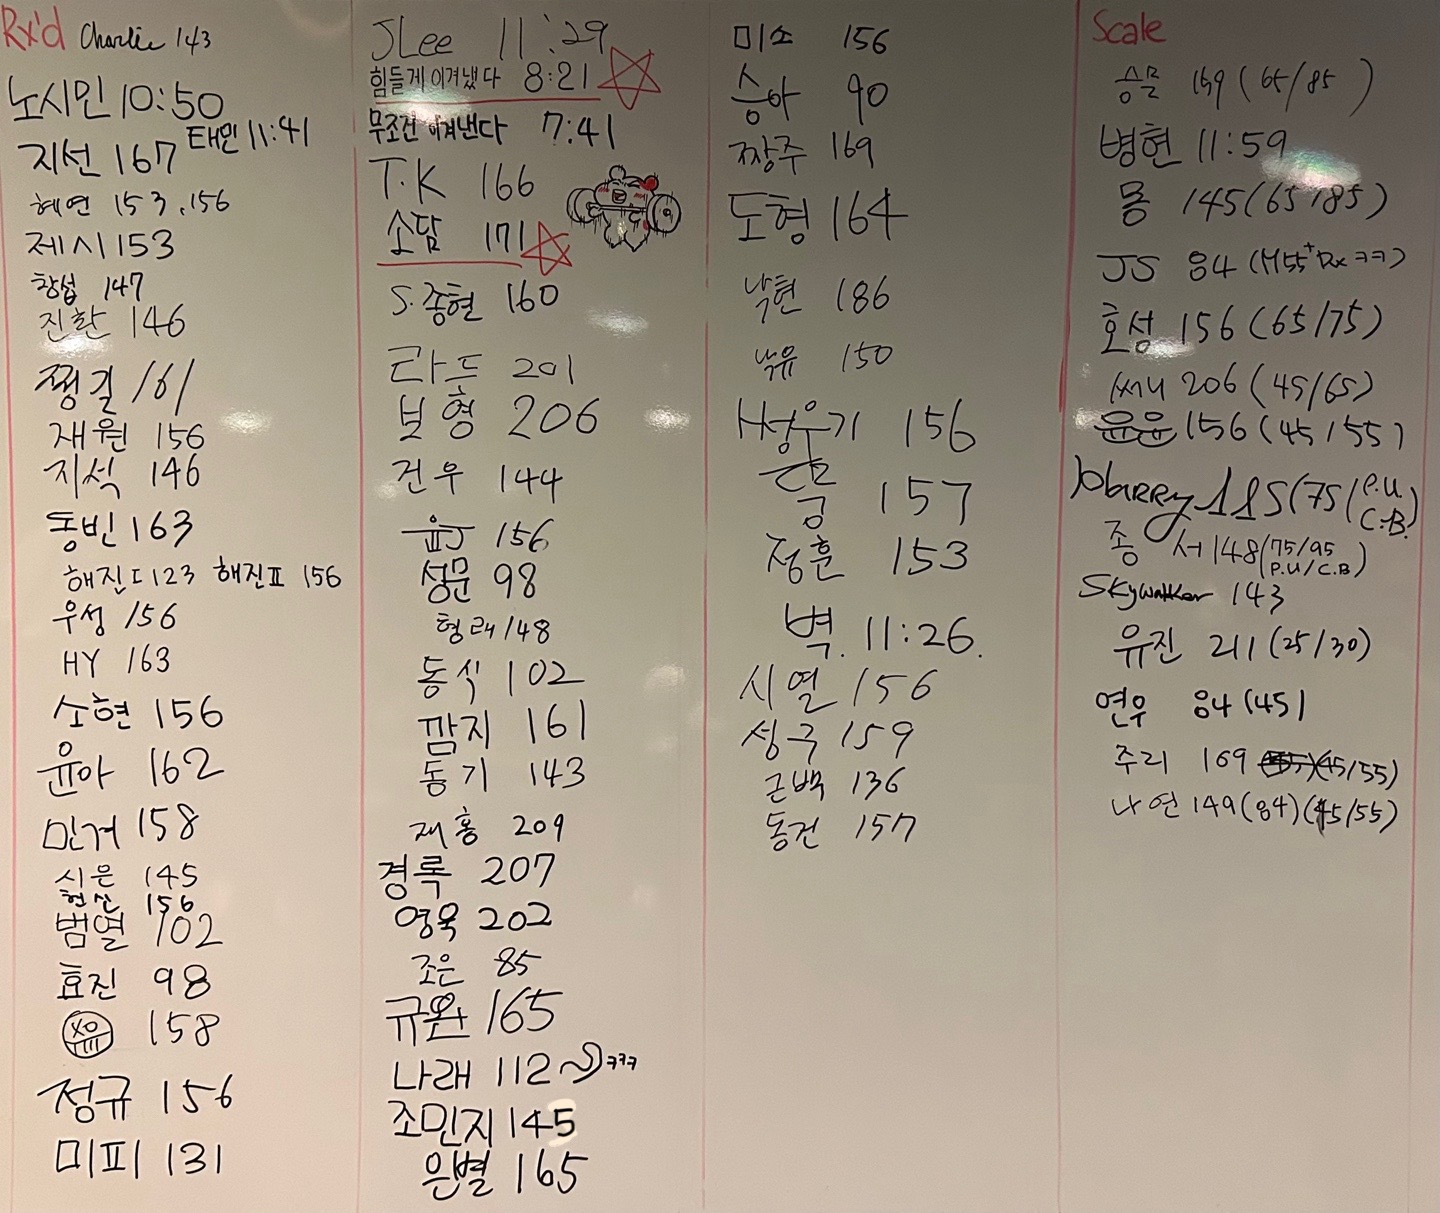 Rx'd Charlie 143
노시민 10:50
태민 11:41
지선 167
혜연 153, 156
제시 153
창섭 147
진환 146
찡길 161
재원 156
지석 146
동빈 163
해진I 123 해진II 156
우성 156
HY 163
소현 156
윤아 162
민거 158
시은 145
현산 156
범열 102
효진 98
158
정규 156
미피 131
JLee 11:29
힘들게 이겨냈다 8:21
무조건 이겨낸다 7:41
T.K 166
소담 171
S.종현 160
라드 201
보형 206
건우 144
윤J 156
성문 98
형래 148
동식 102
깜지 161
동기 143
재홍 209
경록 207
영욱 202
조은 85
규완 165
나래 112 ㅋㅋㅋ
조민지 145
은별 165
미소 156
승아 90
짱주 169
도형 164
낙현 186
낙유 150
H성우기 156
157
정훈 153
벽. 11:26.
시열 156
성구 159
근백 136
동건 157
Scale
승문 159 (65/85)
병현 11:59
몽 145 (65/85)
JS 84 (M55+ Rx ㅋㅋ)
호성 156 (65/75)
써니 206 (45/65)
윤윤 156 (45/55)
185 (75/P.U C.B.)
종서 148 (75/95 P.U/C.B)
Skywalker 143
유진 211 (25/30)
연우 84 (45)
주리 169 (45/55)
나연 149 (84) (45/55)